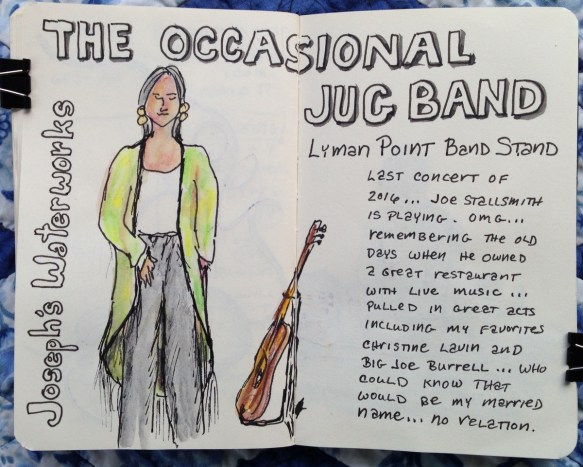 THE OCCASIONAL
JUG BAND
Joseph's Waterworks
Lyman Point Band Stand
Last concert of
2016... Joe Stallsmith
is playing. OMG...
remembering the old
days when he owned
a great restaurant
with live music...
pulled in great acts
including my favorites
Christine Lavin and
Big Joe Burrell... who
could know that
would be my married
name... no relation.